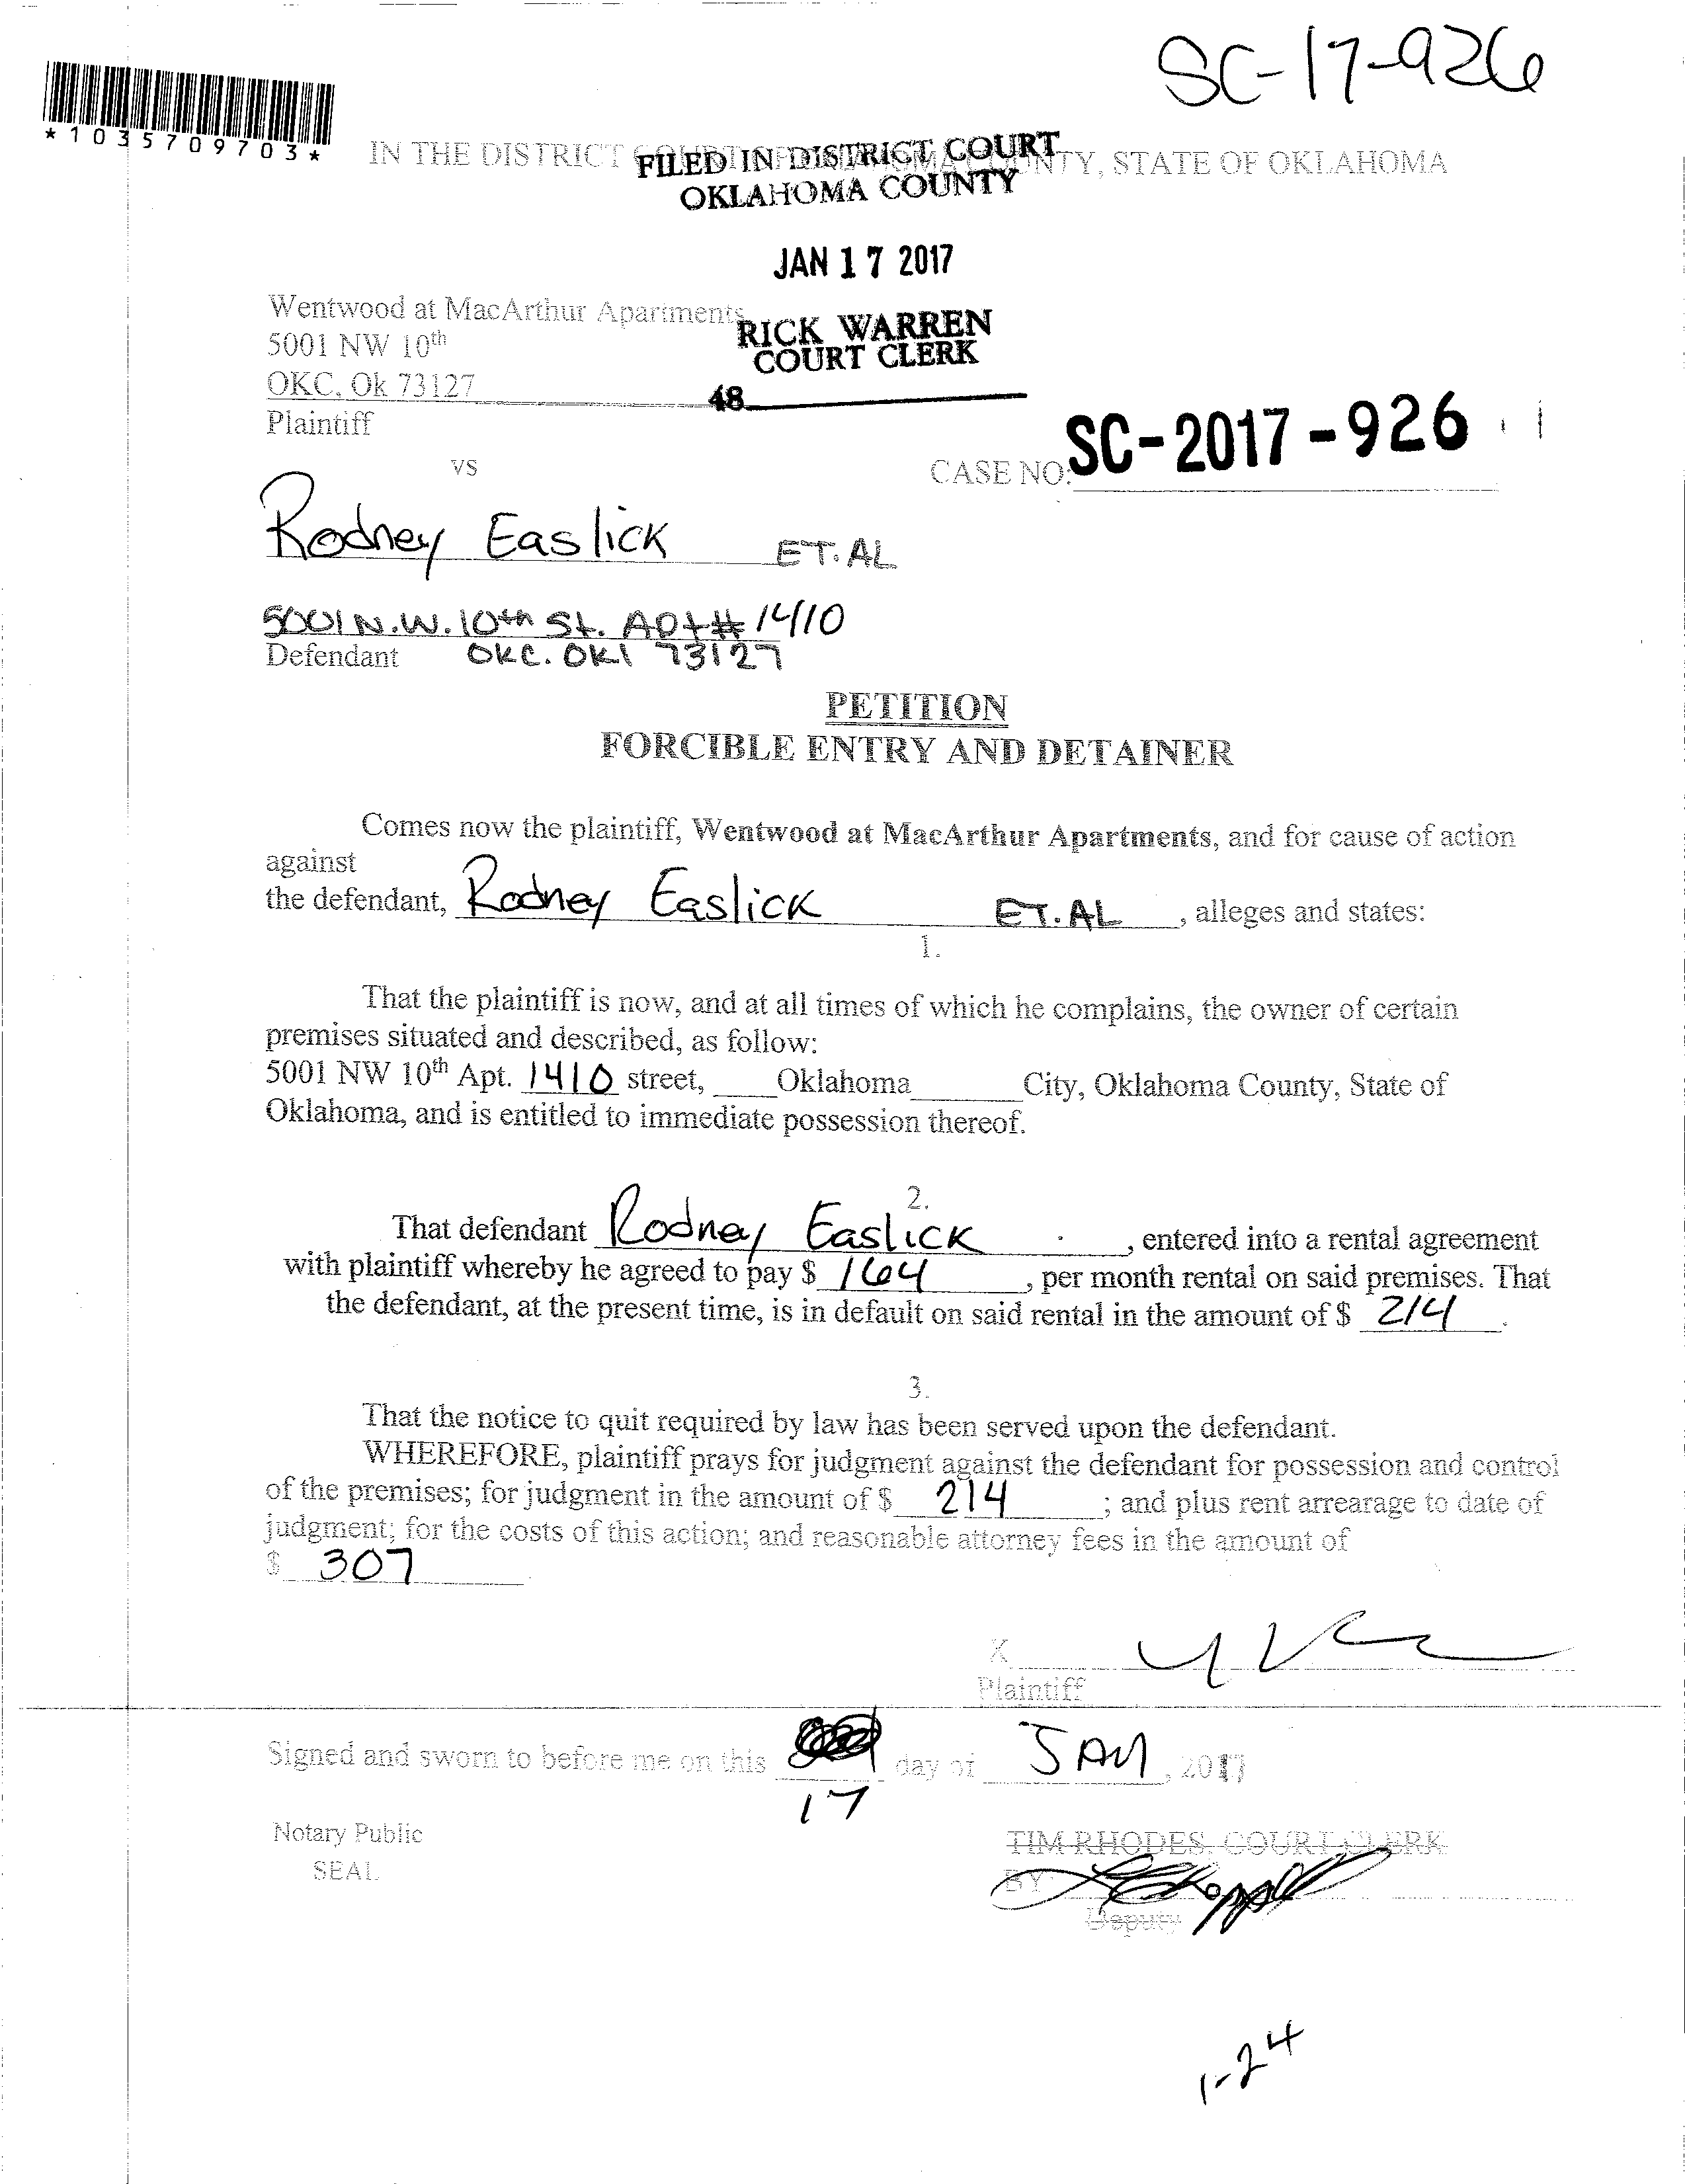 SC-17-926
*1035709703*
IN THE DISTRICT COURT OF OKLAHOMA COUNTY, STATE OF OKLAHOMA
FILED IN DISTRICT COURT
OKLAHOMA COUNTY
JAN 17 2017
Wentwood at MacArthur Apartments
RICK WARREN
5001 NW 10th
COURT CLERK
OKC, Ok 73127
48
Plaintiff
vs
CASE NO: SC-2017-926
Rodney Easlick ET. AL
5001 N.W. 10th St. APt# 1410
Defendant OKC. OKl 73127
PETITION
FORCIBLE ENTRY AND DETAINER
Comes now the plaintiff, Wentwood at MacArthur Apartments, and for cause of action
against
the defendant, Rodney Easlick ET. AL, alleges and states:
1.
That the plaintiff is now, and at all times of which he complains, the owner of certain
premises situated and described, as follow:
5001 NW 10th Apt. 1410 street, Oklahoma City, Oklahoma County, State of
Oklahoma, and is entitled to immediate possession thereof.
2.
That defendant Rodney Easlick, entered into a rental agreement
with plaintiff whereby he agreed to pay $ 164, per month rental on said premises. That
the defendant, at the present time, is in default on said rental in the amount of $ 214.
3.
That the notice to quit required by law has been served upon the defendant.
WHEREFORE, plaintiff prays for judgment against the defendant for possession and control
of the premises; for judgment in the amount of $ 214; and plus rent arrearage to date of
judgment; for the costs of this action; and reasonable attorney fees in the amount of
$ 307
X
Plaintiff
Signed and sworn to before me on this day of JAN, 2017
17
Notary Public
TIM RHODES, COURT CLERK
SEAL
BY
Deputy
1-24